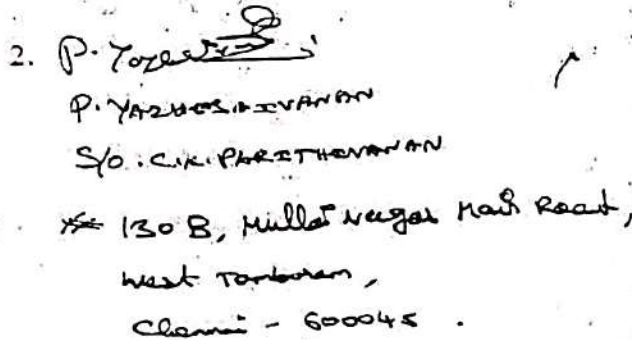 2. P. Yazhes
P. YAZHESAIVANAN
S/O. C.K. PARITHIVANAN
130 B, Mullai Nagar Main Road,
West Tambaram,
Chennai - 600045.